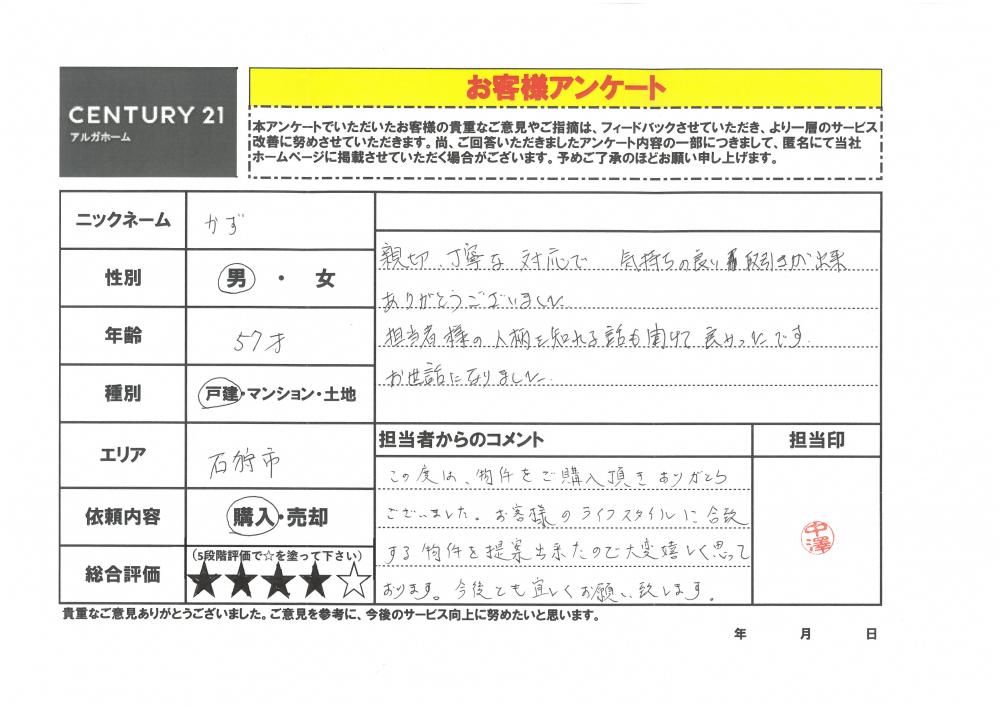 CENTURY 21
アルガホーム
お客様アンケート
本アンケートでいただいたお客様の貴重なご意見やご指摘は、フィードバックさせていただき、より一層のサービス
改善に努めさせていただきます。尚、ご回答いただきましたアンケート内容の一部につきまして、匿名にて当社
ホームページに掲載させていただく場合がございます。予めご了承のほどお願い申し上げます。
ニックネーム
かず
性別
男・女
年齢
57才
種別
戸建・マンション・土地
エリア
石狩市
依頼内容
購入・売却
総合評価
(5段階評価で☆を塗って下さい)
★★★★☆
親切、丁寧な対応で 気持ちの良い取引きが出来
ありがとうございました
担当者様の人柄を知れる話も聞けて良かったです。
お世話になりました。
担当者からのコメント
この度は、物件をご購入頂きありがとう
ございました。お客様のライフスタイルに合致
する物件を提案出来たので大変嬉しく思って
おります。今後とも宜しくお願い致します。
担当印
中澤
貴重なご意見ありがとうございました。ご意見を参考に、今後のサービス向上に努めたいと思います。
年 月 日